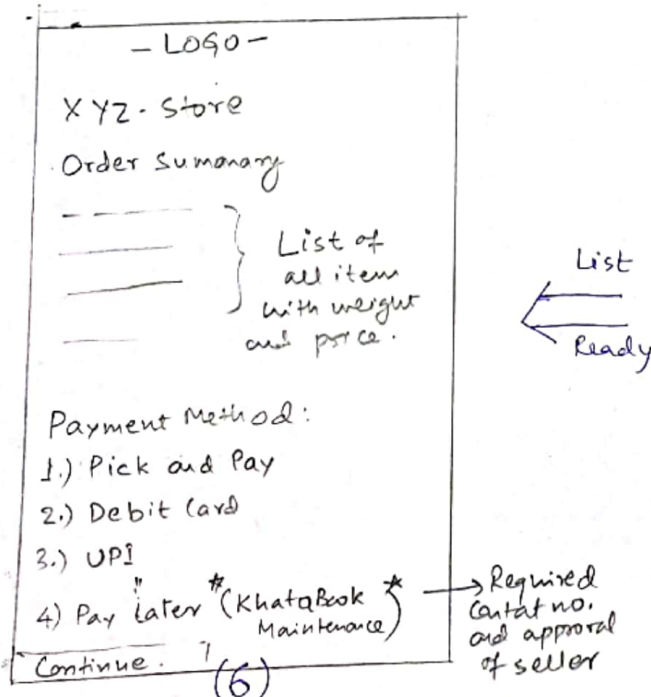 - LOGO -
XYZ - Store
Order Summary
List of
all item
with weight
and price.
List
Ready
Payment Method:
1.) Pick and Pay
2.) Debit Card
3.) UPI
4) Pay "Later * (KhataBook *
Maintenance)
Required
Contat no.
and approval
of seller
Continue.
(6)